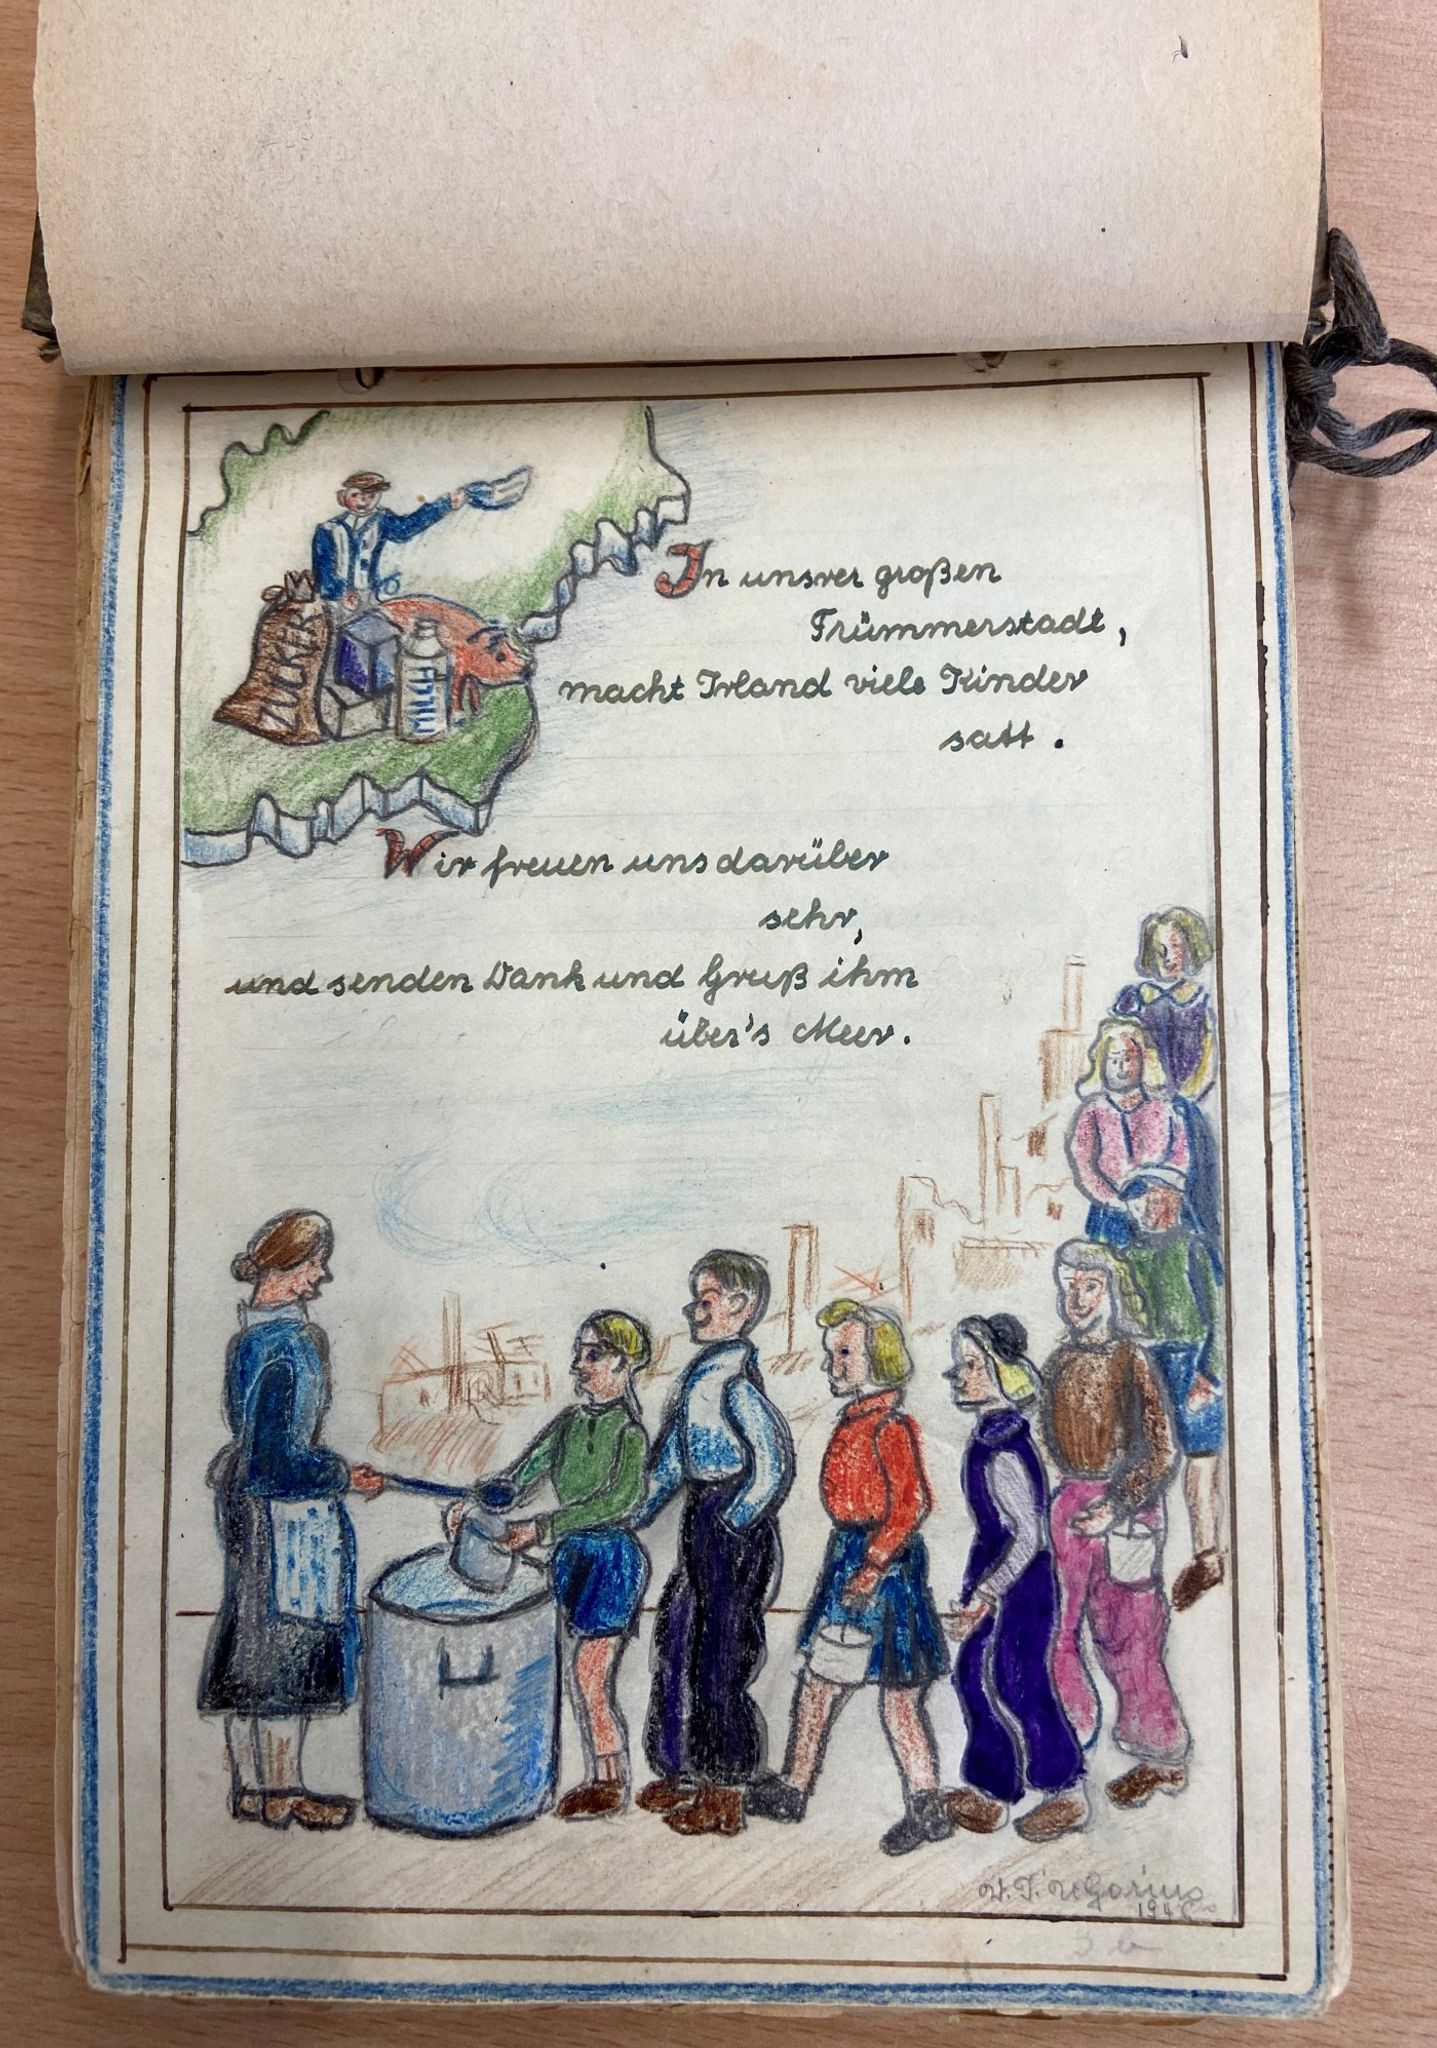 ZUCKER
MILCH
In unsrer großen
Trümmerstadt,
macht Irland viele Kinder
satt.
Wir freuen uns darüber
sehr,
und senden Dank und Gruß ihm
über's Meer.
194
3 b